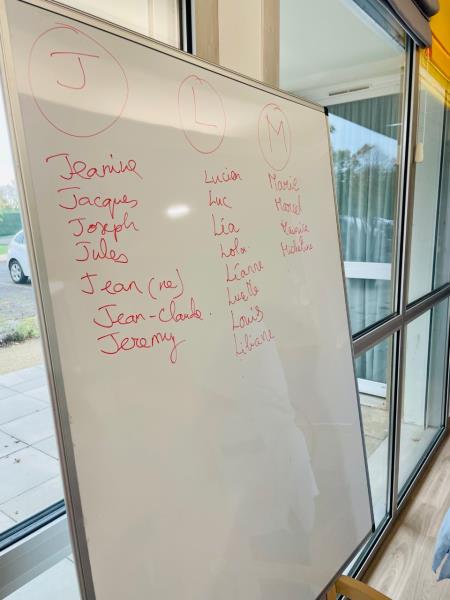 J
Jeanine
Jacques
Joseph
Jules
Jean (ne)
Jean-Claude.
Jeremy
L
Lucien
Luc
Léa
Lola.
Léanne
Lucette
Louis
Liliane
M
Marie
Marcel
Maurice
Micheline